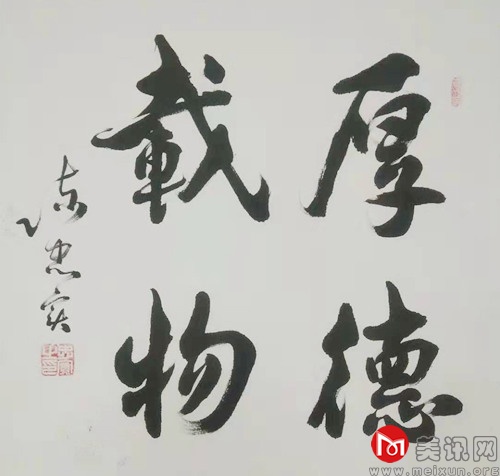 厚德
載物
陈忠实
美讯网
www.meixun.org